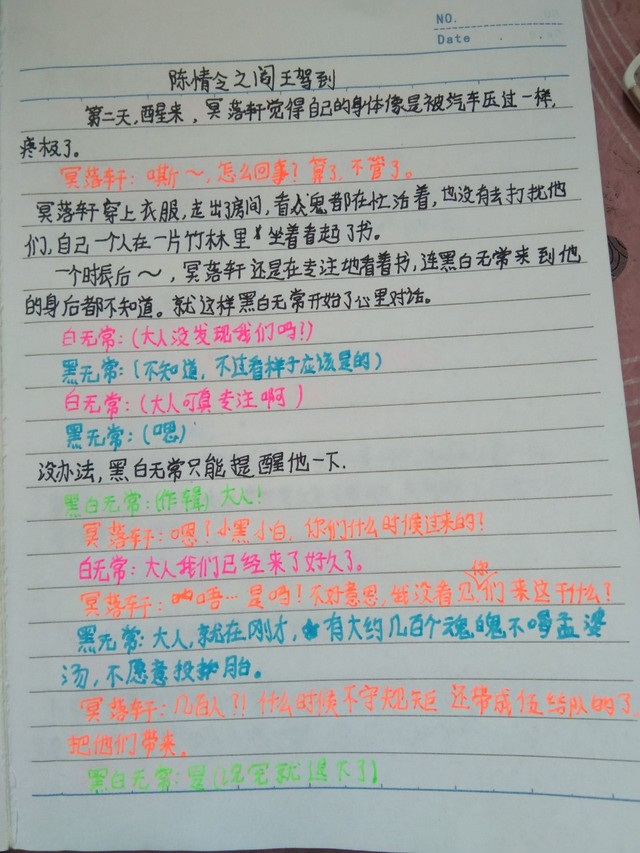 NO.
Date
陈情令之阎王驾到
第二天,醒来,冥落轩觉得自己的身体像是被汽车压过一样,
疼极了。
冥落轩:嘶～,怎么回事?算了,不管了。
冥落轩穿上衣服,走出房间,看众鬼都在忙活着,也没有去打扰他
们,自己一个人在一片竹林里坐着看起了书。
一个时辰后～,冥落轩还是在专注地看着书,连黑白无常来到他
的身后都不知道。就这样黑白无常开始了心里对话。
白无常:(大人没发现我们吗?)
黑无常:(不知道,不过看样子应该是的)
白无常:(大人可真专注啊)
黑无常:(嗯)
没办法,黑白无常只能提醒他一下.
黑白无常:(作辑)大人!
冥落轩:嗯?小黑小白,你们什么时候过来的?
白无常:大人我们已经来了好久了。
冥落轩:唔…是吗!不好意思,我没看见你们来这干什么?
黑无常:大人,就在刚才,有大约几百个魂魄不喝孟婆
汤,不愿意投胎。
冥落轩:几百人?!什么时候不守规矩还带成伍结队的了,
把他们带来。
黑白无常:是(说完就退下了)